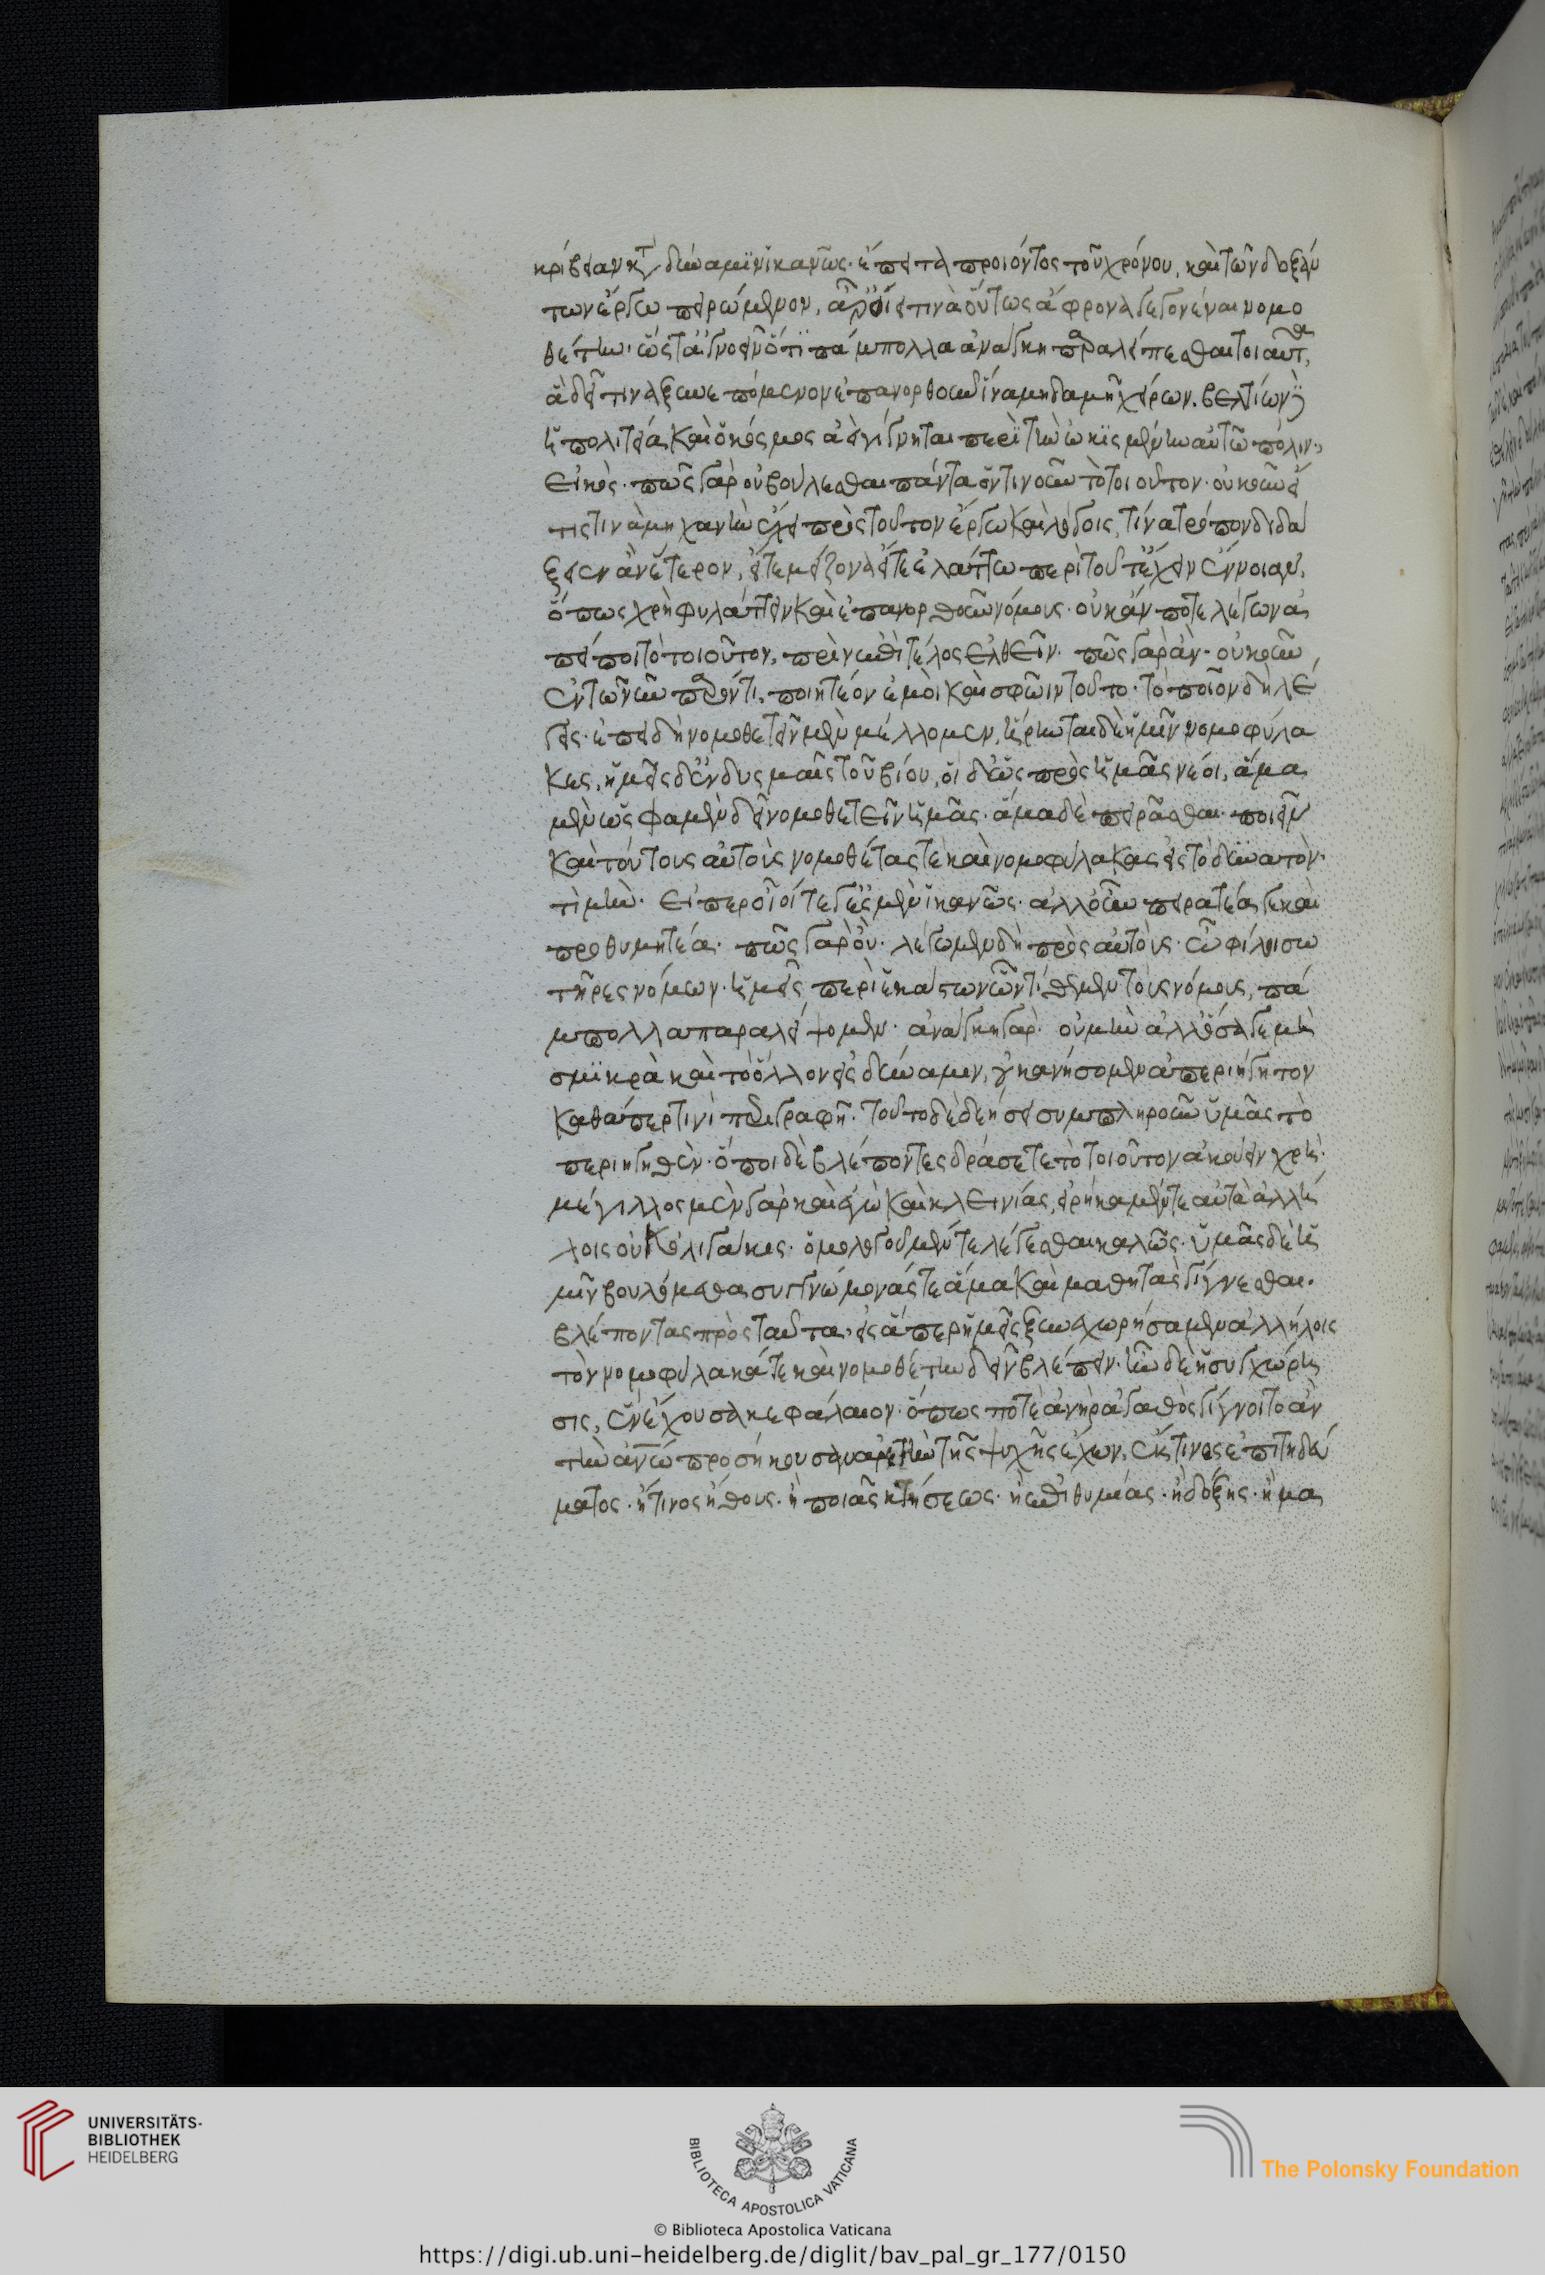 κρίβειαν κτ δύναμιν ἱκανῶς· ἔπειτα προϊόντος τοῦ χρόνου, καὶ τῶν δοξάν
των ἔργω πειρώμενον, ἆρ οἴει τινὰ οὕτως ἄφρονα γεγονέναι νομο
θέτην· ὥστ' ἀγνοεῖν ὅτι πάμπολλα ἀνάγκη παραλείπεσθαι τοιαῦτα,
ἃ δεῖ τινα ξυνεπόμενον ἐπανορθοῦν ἵνα μηδαμῆ χείρων, βελτίων
ἡ πολιτεία καὶ ὁ κόσμος ἀεὶ γίγνηται περὶ τὴν ὠκισμένην αὐτῶ πόλιν·
εἰκός· πῶς γὰρ οὐ βούλεσθαι πάντα ὁντινοῦν τὸ τοιοῦτον· οὐκοῦν εἴ
τις τινὰ μηχανὴν ἔχει πρὸς τοῦτον ἔργω καὶ λόγοις, τίνα τρόπον διδά
ξειεν ἂν ἕτερον, εἴτε μείζονα εἴτε ἐλάττω περὶ τοῦτ' ἔχειν ἔννοιαν,
ὅπως χρὴ φυλάττειν καὶ ἐπανορθοῦν νόμους· οὐκ ἄν ποτε λέγων ἀ
πείποι τὸ τοιοῦτον, πρὶν ἐπὶ τέλος ἐλθεῖν· πῶς γὰρ ἄν· οὐκοῦν
ἐν τῶ νῦν παρόντι, ποιητέον ἐμοὶ καὶ σφῶιν τοῦτο· τὸ ποῖον δὴ λέ
γεις· ἐπειδὴ νομοθετεῖν μὲν μέλλομεν, ἥρηνται δὲ ἡμῖν νομοφύλα
κες, ἡμεῖς δ' ἐν δυσμαῖς τοῦ βίου, οἱ δ' ὡς πρὸς ἡμᾶς νέοι, ἅμα
μὲν ὥς φαμεν δεῖ νομοθετεῖν ἡμᾶς· ἅμα δὲ πειρᾶσθαι ποιεῖν
καὶ τούτους αὐτοὺς νομοθέτας τε καὶ νομοφύλακας εἰς τὸ δυνατόν·
τί μήν· εἴπερ οἷοί τέ γε ἐσμὲν ἱκανῶς· ἀλλ' οὖν πειρατέα γε καὶ
προθυμητέα· πῶς γὰρ οὔ· λέγωμεν δὴ πρὸς αὐτούς· ὦ φίλοι σω
τῆρες νόμων· ἡμεῖς περὶ ἑκάστων ὧν τίθεμεν τοὺς νόμους, πά
μπολλα παραλείψομεν· ἀνάγκη γάρ· οὐ μὴν ἀλλ' ὅσα γε μὴ
σμικρὰ καὶ τὸ ὅλον εἰς δύναμιν, οὐκ ἀνήσομεν ἀπεριήγητον
καθάπερ τινὶ περιγραφῆ· τοῦτο δὲ δεήσει συμπληροῦν ὑμᾶς τὸ
περιηγηθέν· ὅποι δὲ βλέποντες δράσετε τὸ τοιοῦτον ἀκούειν χρή·
μέγιλλος μὲν γὰρ καὶ ἐγὼ καὶ κλεινίας, εἰρήκαμέν τε αὐτὰ ἀλλή
λοις οὐκ ὀλιγάκις· ὁμολογοῦμέν τε λέγεσθαι καλῶς· ὑμᾶς δὲ ἡ
μῖν βουλόμεθα συγγνώμονάς τε ἅμα καὶ μαθητὰς γίγνεσθαι·
βλέποντας πρὸς ταῦτα, εἰς ἅπερ ἡμεῖς ξυνεχωρήσαμεν ἀλλήλοις
τὸν νομοφύλακά τε καὶ νομοθέτην δεῖν βλέπειν· ἦν δὲ ἡ συγχώρη
σις, ἓν ἔχουσα κεφάλαιον· ὅπως ποτὲ ἀνὴρ ἀγαθὸς γίγνοιτο ἂν
τὴν ἀνῶ προσήκουσαν ἀρετὴν τῆς ψυχῆς ἔχων, ἔκ τινος ἐπιτηδεύ
ματος· ἤ τινος ἤθους· ἢ ποιᾶς κτήσεως· ἢ ἐπιθυμίας· ἢ δόξης· ἢ μα
UNIVERSITÄTS-
BIBLIOTHEK
HEIDELBERG
BIBLIOTECA APOSTOLICA VATICANA
The Polonsky Foundation
© Biblioteca Apostolica Vaticana
https://digi.ub.uni-heidelberg.de/diglit/bav_pal_gr_177/0150